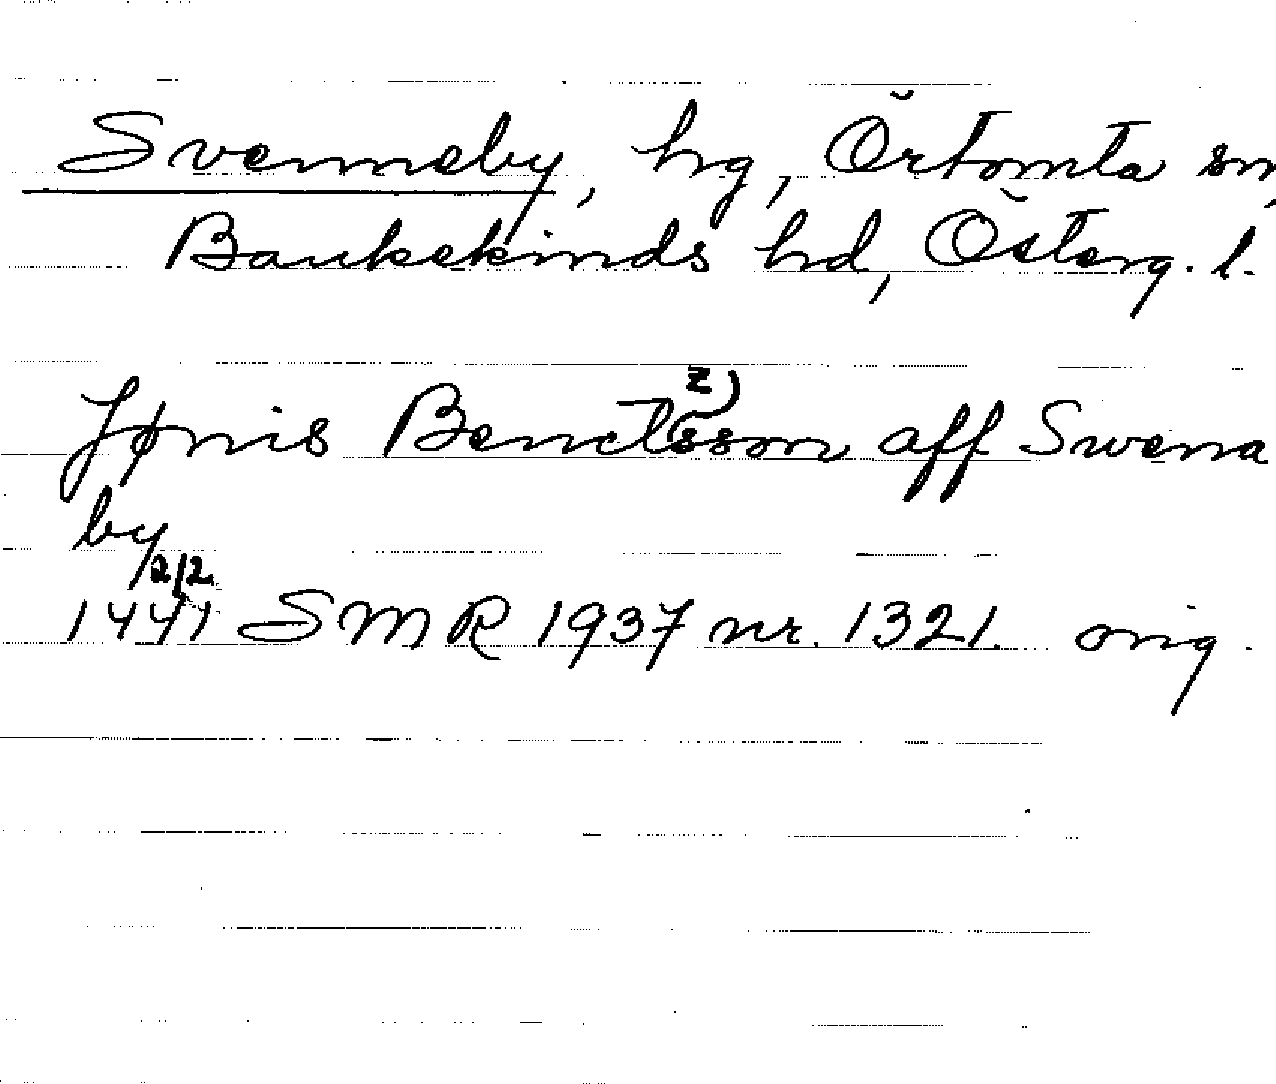 Svenneby, hg, Örtomta sn,
Bankekinds hd, Österg. l.
Jønis Benctsson aff Swena
by
2/2
1441 SMR 1937 nr. 1321. orig.